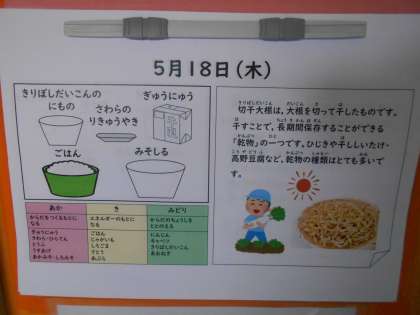 5月18日(木)
きりぼしだいこんの
にもの
さわらの
りきゅうやき
ぎゅうにゅう
ごはん
みそしる
切干大根は、大根を切って干したものです。
干すことで、長期間保存することができる
「乾物」の一つです。ひじきや干ししいたけ、
高野豆腐など、乾物の種類はとても多いで
す。
あか
き
みどり
からだをつくるもとに
なる
エネルギーのもとに
なる
からだのちょうしを
ととのえる
ぎゅうにゅう
さわら・ひらてん
とうふ
うすあげ
あかみそ・しろみそ
ごはん
じゃがいも
しろごま
さとう
あぶら
にんじん
キャベツ
きりぼしだいこん
あおねぎ